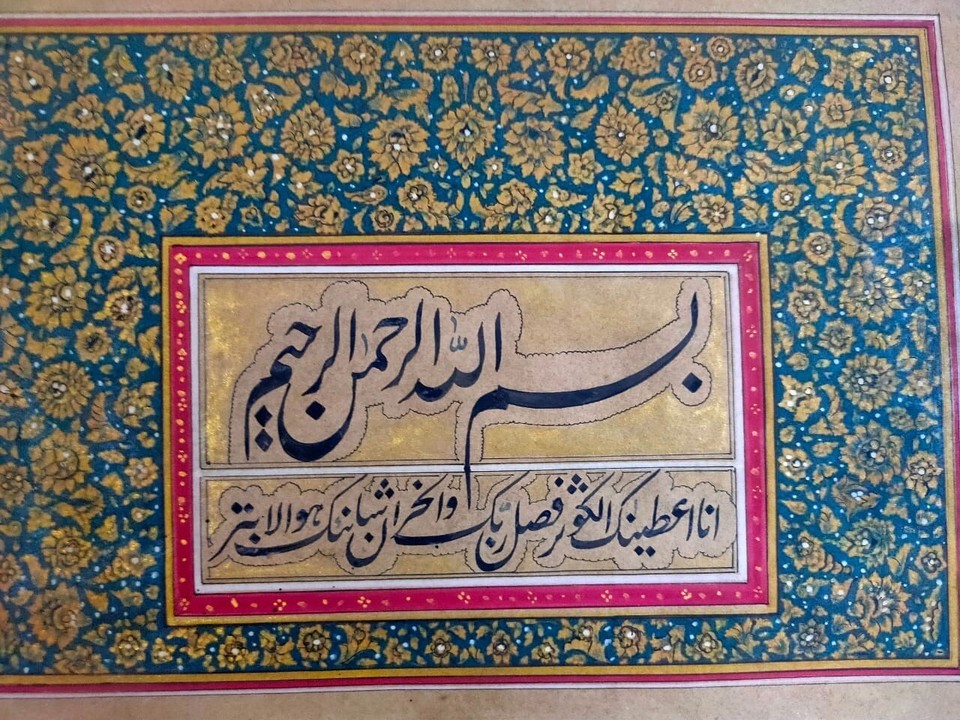 بسم الله الرحمن الرحیم
انا اعطینک الکوثر فصل ربک وانحر ان شانئک هو الابتر